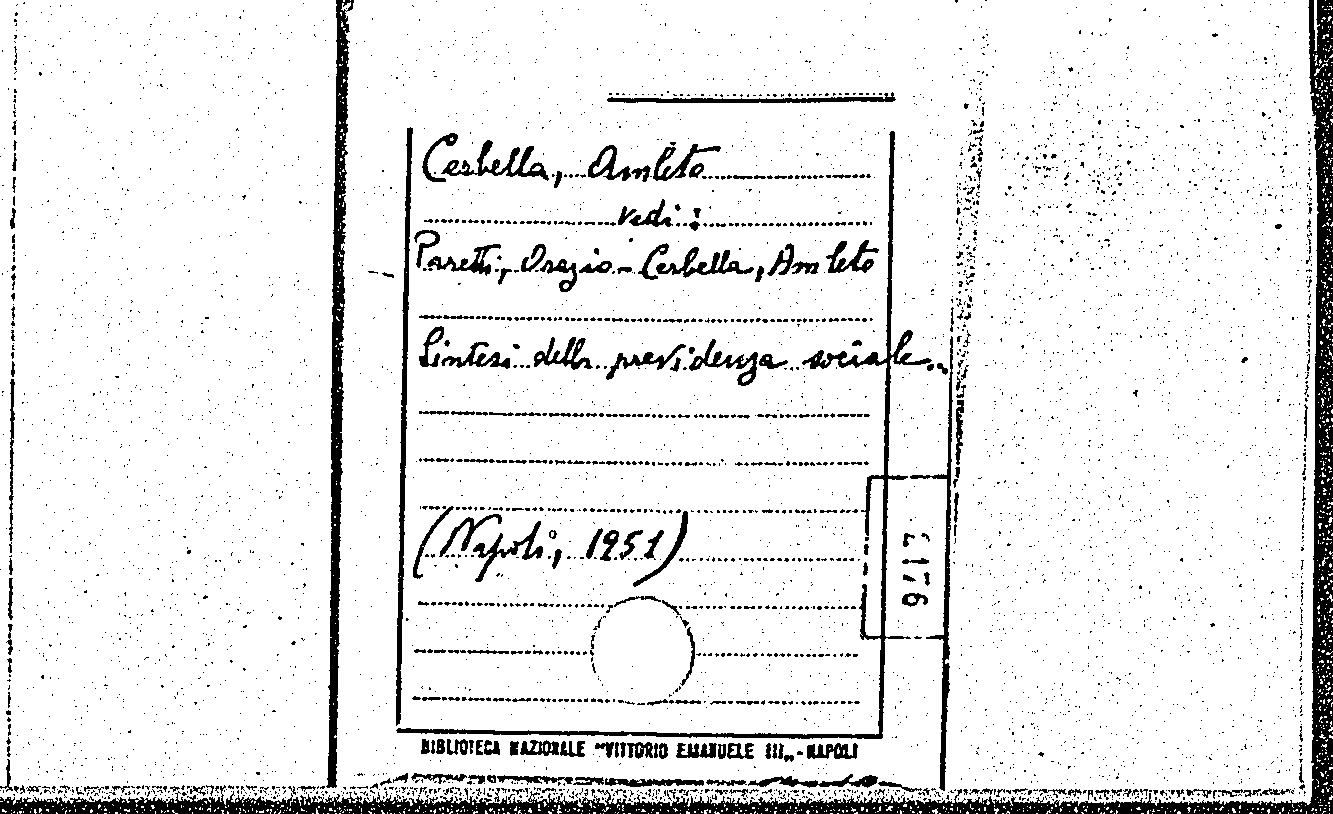 Cerbella, Amleto
vedi:
Paretti, Orazio - Cerbella, Amleto
Sintesi della previdenza sociale...
(Napoli, 1951)
176
BIBLIOTECA NAZIONALE "VITTORIO EMANUELE III„ - NAPOLI